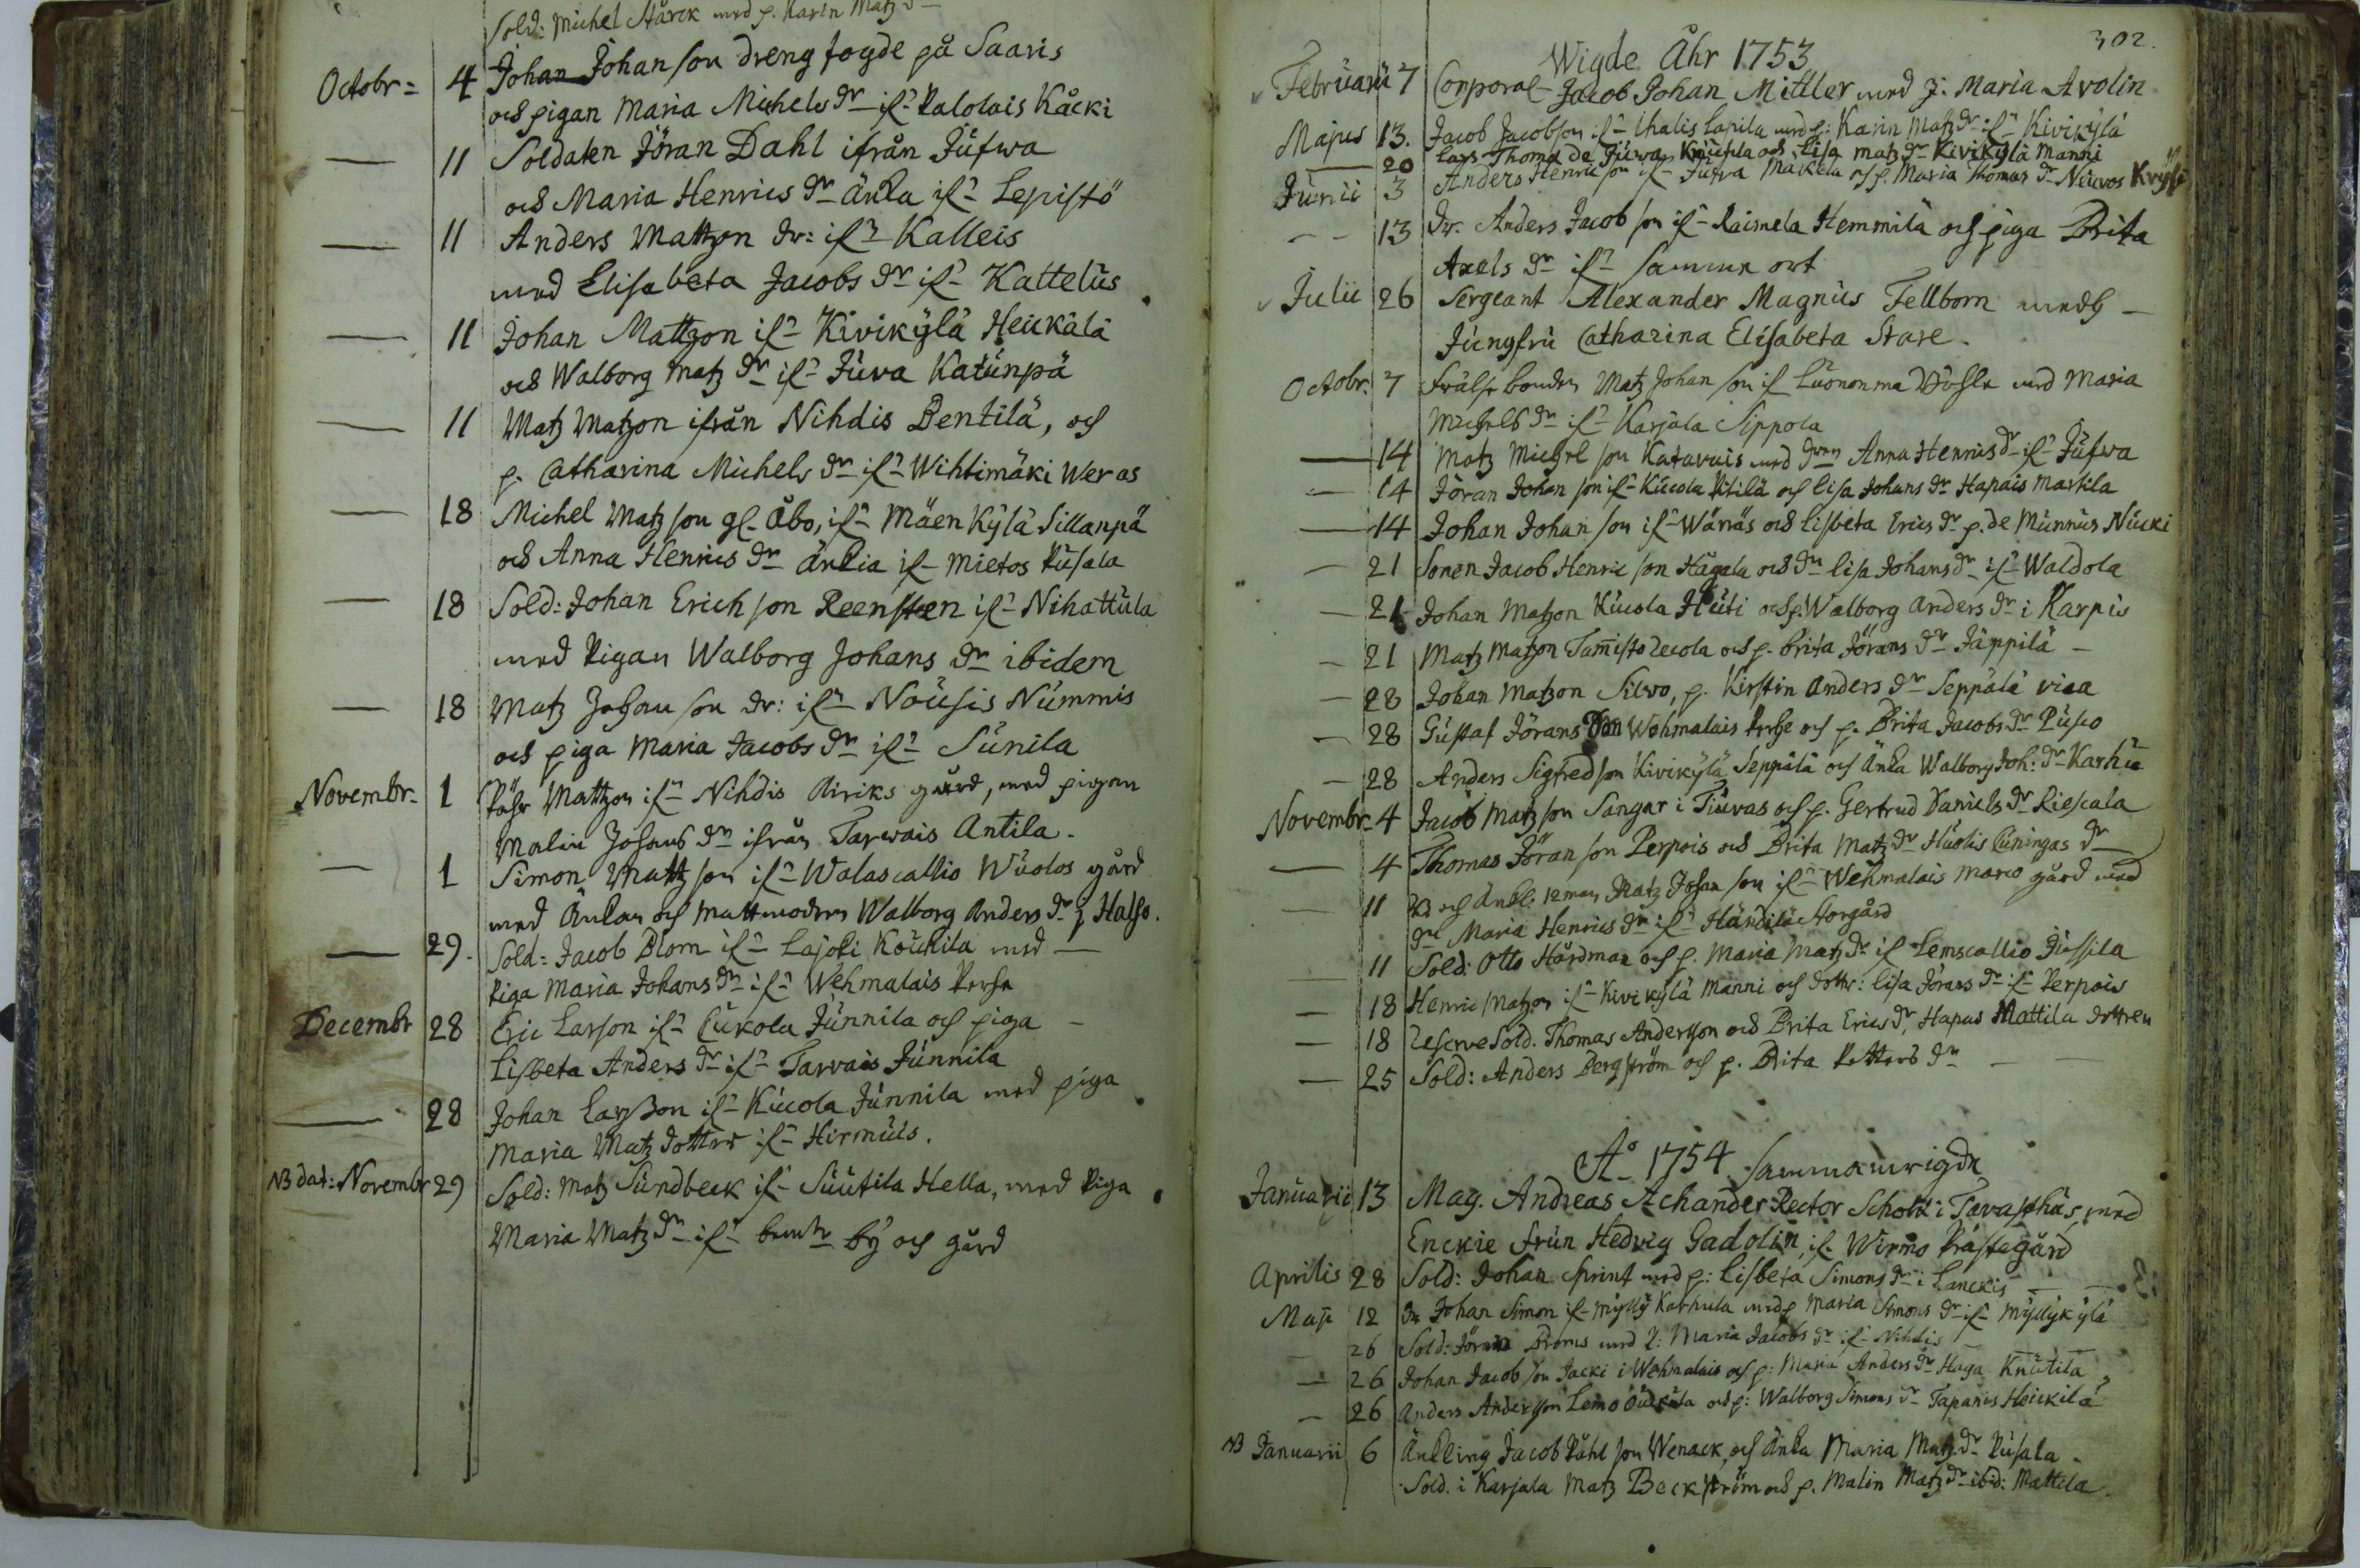 Sold: Michel Stårck med p. Karin Matz dr
Octobr= 4 Johan Johan son dreng fogde på Saaris
och pigan Maria Michels dr if:n Palolais Kåcki
— 11 Soldaten Jöran Dahl ifrån Jufwa
och Maria Henrics dr änka if:n Lepistö
— 11 Anders Mattzon dr: if:n Kalleis
med Elisabeta Jacobs dr if:n Kattelus
— 11 Johan Mattzon if:n Kivikylä Heickälä
och Walborg Matz dr if:n Juva Katunpä
— 11 Matz Matzon ifrån Nihdis Pentilä, och
p. Catharina Michels dr if:n Wihtimäki Weras
— 18 Michel Matz son gl. Åbo, if:n Mäenkylä Sillanpä
och Anna Henrics dr Änkia if:n Mietos Pusala
— 18 Sold: Johan Erich son Reensteen if:n Nihattula
med Pigan Walborg Johans dr ibidem
— 18 Matz Johan son dr: if:n Nousis Nummis
och piga Maria Jacobs dr if:n Sunila
Novembr. 1 Påhr Mattzon if:n Nihdis Ririks gård, med pigan
Malin Johans dr ifrån Tarwais Antila.
— 1 Simon Matt son if:n Walascallio Wuolos gård
med Änkan och Mattmodren Walborg Anders dr Halso.
— 29. Sold: Jacob Blom if:n Lajoki Kouhila med —
Piga Maria Johans dr if:n Wehmalais Perhe
Decembr 28 Eric Larson if:n Cukola Junnila och piga —
Lisbeta Anders dr if:n Tarvais Junnila
— 28 Johan Larsson if:n Kucola Junnila med piga
Maria Matz dotter if:n Hirmuis.
NB dat: Novembr 29 Sold: Matz Sundbeck if:n Suutila Hella, med Piga
Maria Matz dr if:n by och gård
302.
Wigde Åhr 1753
Februarii 7 Corporal Jacob Johan Mittler med J: Maria Avolin
Majus 13. Jacob Jacobson if:n Uhalis Lapila med p: Karin Matz dr if:n Kivikylä
— 20 Lars Thomæ de Juva och Lisa Matz dr Kivikylä Manni
Junii 3 Anders Henric son if:n Jufva Mäkelä och p. Maria Thomas dr Nuvos
— 13 Dr. Anders Jacob son if:n Raimela Hemmilä och piga Brita
Axels dr if:n samma ort
Julii 26 Sergeant Alexander Magnus Fellborn medh —
Jungfru Catharina Elisabeta Stare.
Octobr. 7 Frälse bonden Matz Johan son if:n Luononma med Maria
Michels dr if:n Karjala Sippola
— 14 Matz Michel son Katavais med Anna Henrics dr if:n Jufwa
— 14 Jöran Johan son if:n Kucola Pitilä och Lisa Johans dr Hapais Martila
— 14 Johan Johan son if:n Wänäs och Lisbeta Erics dr p. de Munnus Nuuki
— 21 Sonen Jacob Henric son Hägala och dr Lisa Johans dr if:n Waldola
— 21 Johan Matzon Kucola Huti och p. Walborg Anders dr i Karpis
— 21 Matz Matzon Tamisto Uecola och p. Brita Jörans dr Jäppilä —
— 28 Johan Matzon Silvo, p. Kirstin Anders dr Seppälä
— 28 Gustaf Jörans son Wehmalais Perhe och p. Brita Jacobs dr Pusco
— 28 Anders Sigfredson Kivikylä Seppälä och Änka Walborg Joh: dr Karhu
Novembr. 4 Jacob Matz son Sangar i Tiuvas och p. Gertrud Daniels dr Riescala
— 4 Thomas Jöran son Perpois och Brita Matz dr Huolis Cuningas dr
— 11 och Änkl. 12 man Matz Johan son if:n Wehmalais Marco gård med
Maria Henrics dr if:n Händilä Storgård
— 11 Sold: Otto Hårdman och p. Maria Matz dr if Lemscallio Jussila
— 18 Henric Matzon if:n Kivikylä Manni och dotter: Lisa Jörans dr if:n Perpois
— 18 Reserve Sold. Thomas Andersson och Brita Erics dr, Hapas Mattila dottren
— 25 Sold: Anders Bergström och p. Brita Petters dr — —
Aº 1754 Sammanwigde
Januarii 13 Mag. Andreas Achander Rector Scholæ i Tavasthus, med
Enckie Frun Hedvig Gadolin, if. Wirmo Prästegård
Aprilis 28 Sold: Johan Sprint med p: Lisbeta Simons dr i Lanckis —
Maji 12 Dr Johan Simon if:n Mylly Karhula med p Maria Simons dr if:n Myllykylä
— 26 Sold: Jöran Broms med p: Maria Jacobs dr if:n Nihdis —
— 26 Johan Jacob son Jacki i Wehmalais och p: Maria Anders dr Haga Knutila
— 26 Anders Andersson Lemo och p: Walborg Simons dr Tapanis Heickilä
NB Januarii 6 Änkling Jacob Påhl son Wenack, och Änka Maria Matz dr Pusala.
Sold. i Karjala Matz Beckström och p. Malin Matz dr ibid: Mattila.